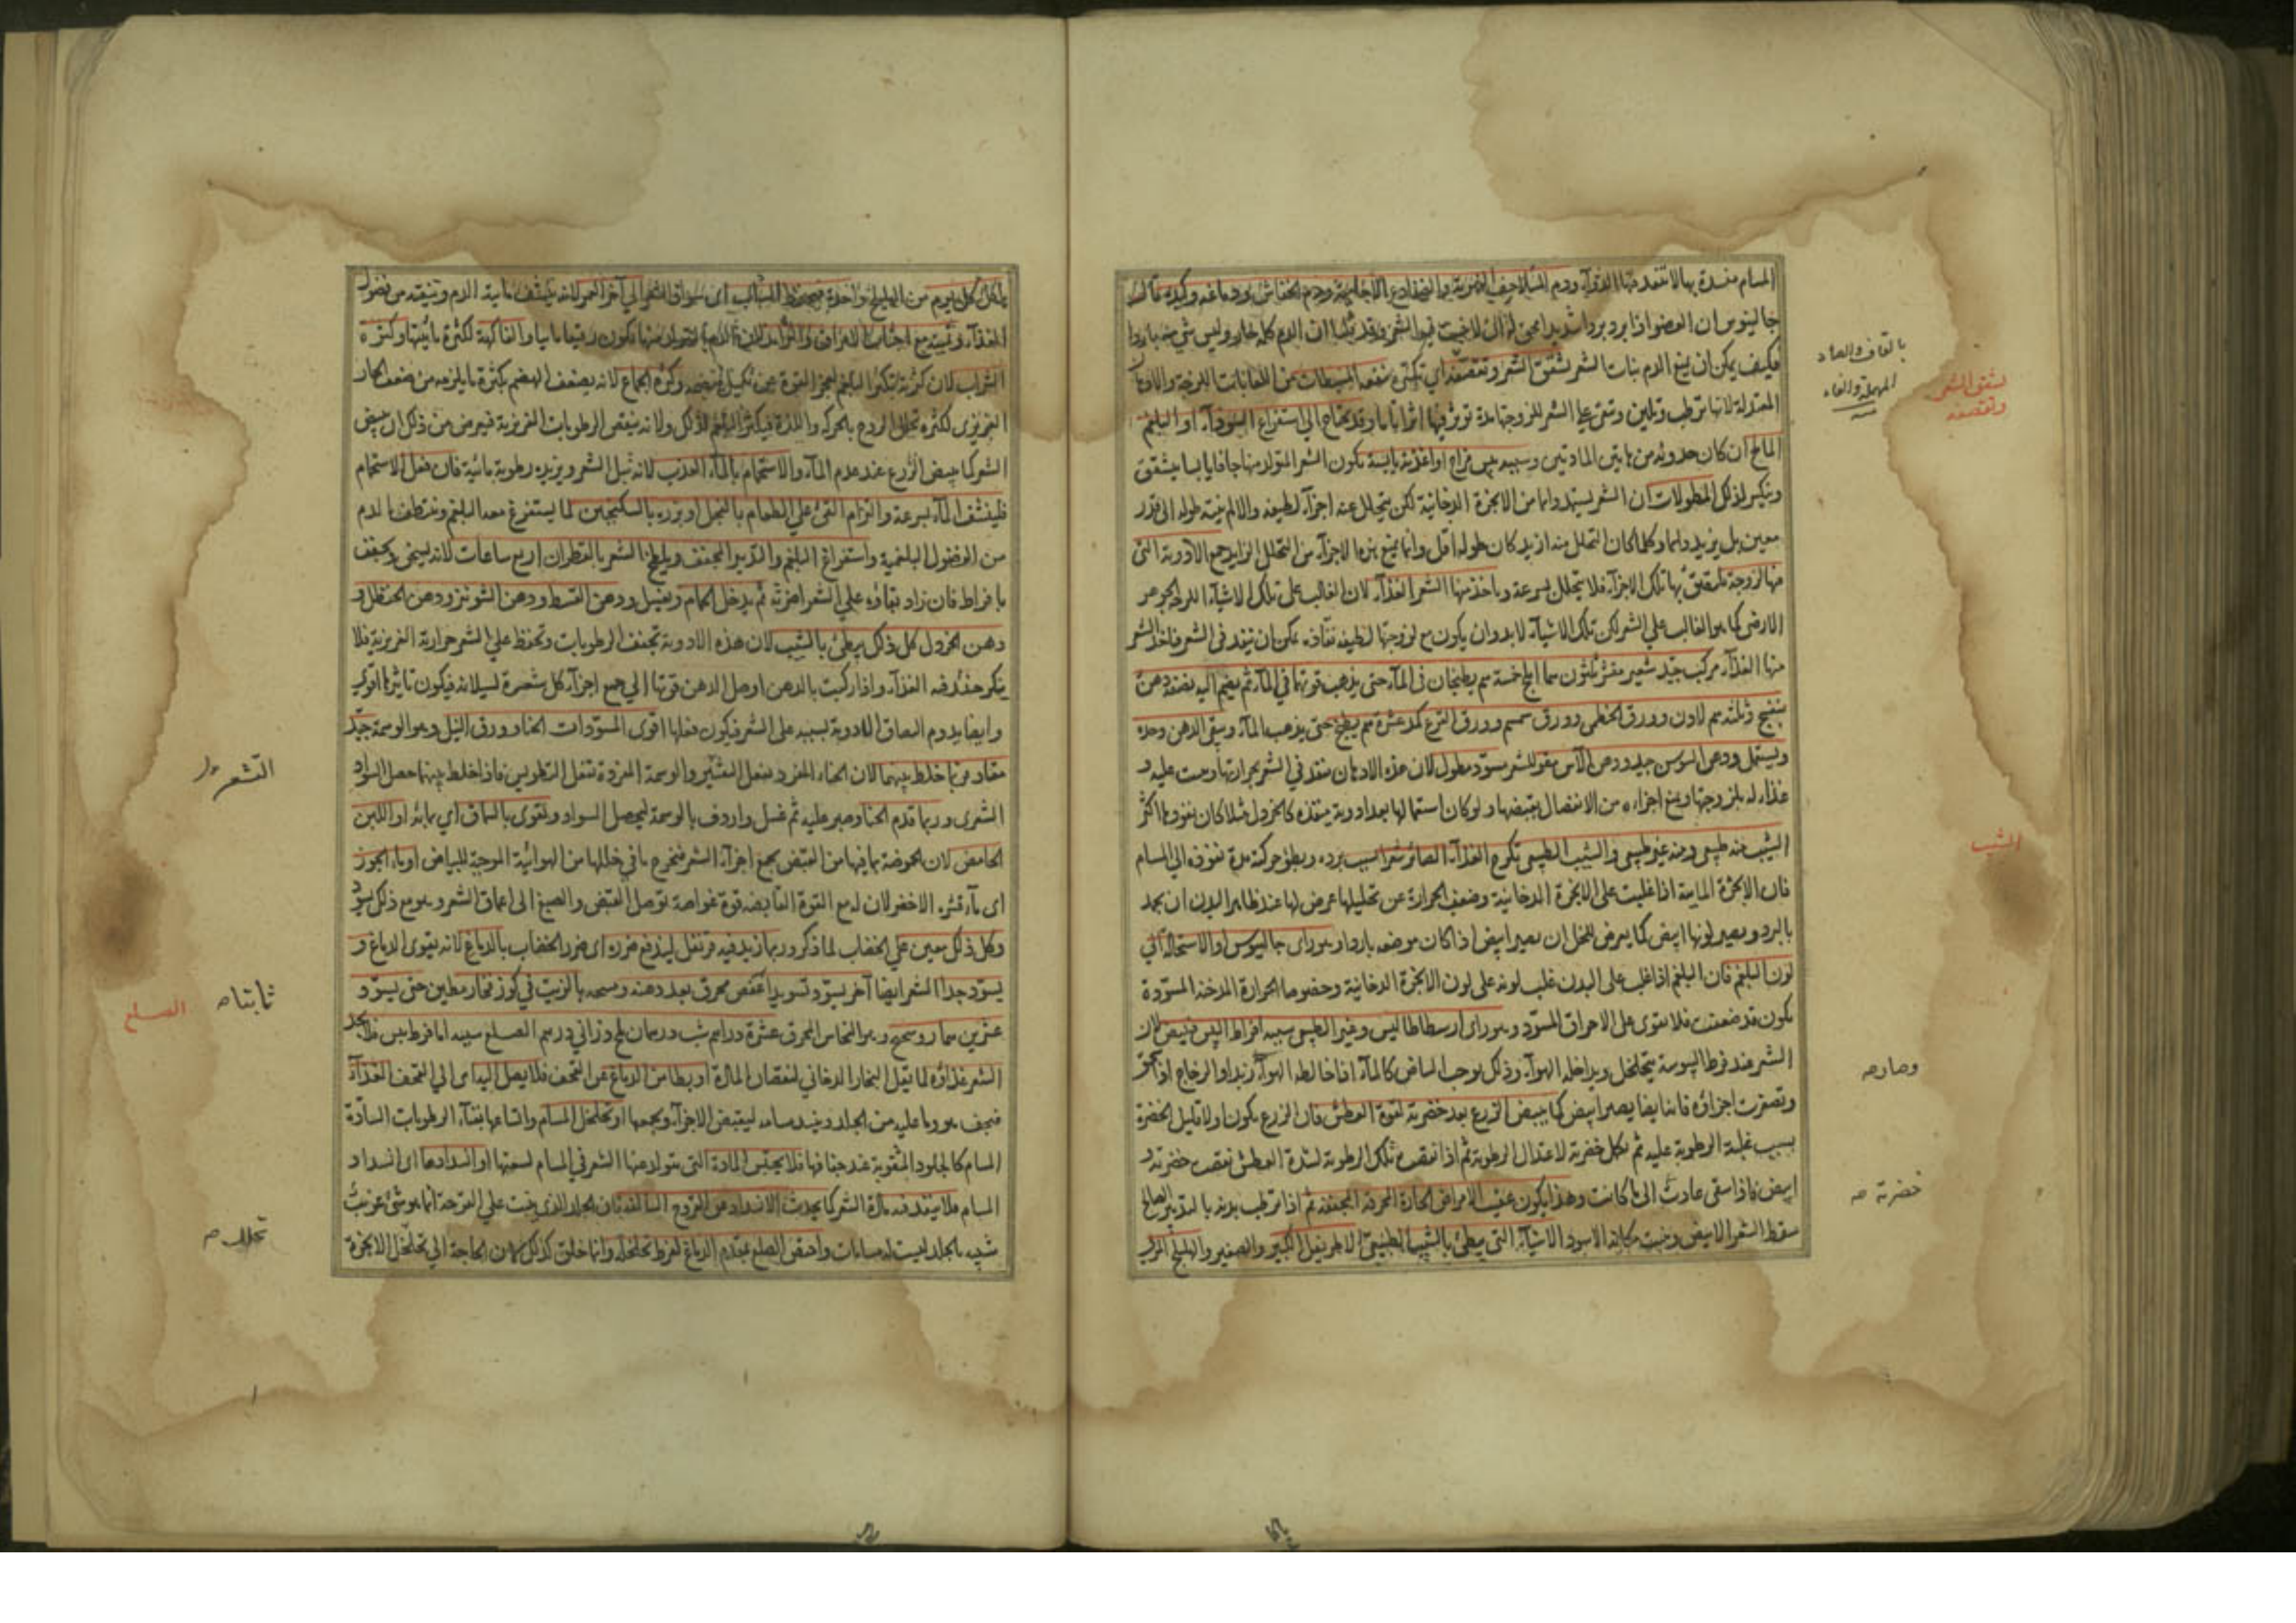 المسام منسدة بها لا تنفد منها الغذاء ودم السلاحف النهرية والضفادع الآجامية ودم الخفاش ودماغه وكبده قال
جالينوس ان العضو اذا برد بردا شديدا حتى لا ينبت فيه الشعر وقد بينا ان الدم كله حار وليس شئ منه باردا
فكيف يمكن ان يمنع الدم نبات الشعر تشقق الشعر وتقصفه اي تكسره ينفعه البسيطات من اللعابات اللزجة والادهان
المعتدلة لانها ترطب وتلين وتبقى على الشعر للزوجتها مدة تؤثر فيها اثرا تاما وقد يحتاج الى استفراغ السوداء او البلغم
المالح ان كان حدوثه من هاتين المادتين وسببه يبس مزاج او اغذية يابسة يكون الشعر المتولد منها جافا يابسا يتشقق
ويتكسر لذلك المطولات ان الشعر يستمد دائما من الابخرة الدخانية لكن يتحلل عنه اجزاء لطيفه والا لم ينته طوله الى قدر
معين بل يزيد دائما وكلما كان التحلل منه ازيد كان طوله اقل وانما يمنع هذه الاجزاء من التحلل الزايد جمع الادوية التى
فيها لزوجة تتعلق بها تلك الاجزاء فلا تتحلل بسرعة وياخذ منها الشعر الغذاء لان الغالب على تلك الاشياء اللزجة الجوهر
الارضى كما هو الغالب على الشعر لكن تلك الاشياء لا بد وان يكون مع لزوجتها لطيفه نفاذه يمكن ان تنفد فى الشعر فياخذ الشعر
منها الغذاء مركب جيد شعير مقشر ثلثون املج خمسة يطبخان فى الماء حتى يذهب قوتهما فى الماء ثم يضم اليه نصفه دهن
بنفسج وثلثه لادن وورق الخطمى وورق سمسم وورق القرع كمد عشرة يطبخ حتى يذهب الماء ويبقى الدهن وحده
ويستعمل ودهن السوسن جيد ودهن الآس مقو للشعر مسود مطول لان هذه الادهان تنفد فى الشعر بحرارتها وتثبت عليه و
غذاء له بلزوجتها ويمنع اجزاءه من الانفصال بقبضها ولو كان استعمالها بعد ادوية منفذه كالخردل مثلا كان نفوذها اكثر
الشيب منه طبيعى ومنه غير طبيعى والشيب الطبيعى تكرج الغذاء الصائر شعرا بسبب برده وبطؤ حركته مدة نفوذه الى المسام
فان الابخرة المايية اذا غلبت على الابخرة الدخانية وضعف الحرارة عن تحليلها عرض لها عند ظاهر البدن ان يجمد
بالبرد ويصير لونها ابيض كما يعرض للخل ان يصير ابيض اذا كان موضعه باردا وهو راى جالينوس او الاستحالة الى
لون البلغم فان البلغم اذا غلب على البدن غلب لونه على لون الابخرة الدخانية وخصوصا الحرارة المدخنه المسودة
يكون قد ضعفت فلا تقوى على الاحراق المسود وهو راى ارسطاطاليس وغير الطبيعى سببه افراط اليبس فيبيض لان
الشعر عند فرط اليبوسة يتخلخل ويداخله الهواء وذلك يوجب البياض كالماء اذا خالطه الهواء زبدا والزجاج اذا سحق
وتصغرت اجزاؤه فانه ايضا يصير ابيض كما يبيض الزرع بعد خضرته لقوة العطش فان الزرع يكون اولا قليل الخضرة
بسبب غلبة الرطوبة عليه ثم يكمل خضرته لاعتدال الرطوبة ثم اذا نقصت تلك الرطوبة لشدة العطش نقصت خضرته و
ابيض فاذا سقى عادت الى ما كانت وهذا يكون عقيب الامراض الحارة المحرقة المجففة ثم اذا ترطب بدنه بالتدبير الصالح
سقط الشعر الابيض ونبت مكانه الاسود الاشياء التى تبطئ بالشيب الطبيعى الاطريفل الكبير والصغير والهليلج المربى
بالقاف والصاد
المهملة والفاء
تشقق الشعر
وتقصفه
الشيب
وصار صه
خضرته صه
ياكل كل يوم من الهليلج واحدة فيحفظ الشباب اى سواد الشعر الى آخر العمر لانه ينشف مايية الدم وتنقيه من فضول
الغذاء وتقيته مع اجتناب الامراق والثرائد لان الدم المتولد منها يكون رقيقا مايا والفاكهة لكثرة مائيتها وكثرة
الشراب لان كثرته تكثر البلغم لعجز القوة عن تكميل هضمه وكثرة الجماع لانه يضعف الهضم بكثرة ما يلزمه من ضعف الحار
الغريزى لكثرة تحلل الروح بالحركة واللذة فيكثر البلغم لذلك ولانه ينقص الرطوبات الغريزية فيعرض من ذلك ان يبيض
الشعر كما يبيض الزرع عند عدم الماء والاستحمام بالماء العذب لانه يبل الشعر ويزيده رطوبة مائية فان فعل الاستحمام
فلينشف الماء بسرعة والتزام القئ على الطعام بالفجل او بزره بالسكنجبين لما يستفرغ معه البلغم وينظف الدم
من الفضول البلغمية واستفراغ البلغم والتدبير المجفف ويلطخ الشعر بالقطران اربع ساعات لانه يسخن ويجفف
بافراط فان زاد بقاؤه على الشعر اضر به ثم يدخل الحمام ويغسل ودهن القسط ودهن الشونيز ودهن الحنظل و
دهن الخردل كل ذلك يبطئ بالشيب لان هذه الادوية تجفف الرطوبات وتحفظ على الشعر حرارته الغريزية فلا
يتكرج فيه الغذاء واذا ركبت بالدهن اوصل الدهن قوتها الى جميع اجزاء كل شعرة لسيلانه فيكون تاثيرها اقوى
وايضا يدوم التصاق الادوية بسببه على الشعر فيكون فعلها اقوى المسودات الحنا وورق النيل وهو الوسمة جيد
معتاد من خلط بينهما لان الحناء المفرد يفعل التشقير والوسمة المفردة تفعل التطويس فاذا خلط بينهما حصل السواد
الشعرى وربما قدم الحنا وصبر عليه ثم غسل واردف بالوسمة ليحصل السواد ولتقوى بالسماق اى بمائه او اللبن
الحامض لان الحموضة بما فيها من القبض يجمع اجزاء الشعر فيخرج ما فى خللها من الهوائية الموجبة للبياض او ماء الجوز
اى ماء قشره الاخضر لان له مع القوة القابضة قوة غواصة توصل القبض والصبغ الى اعماق الشعر وهو مع ذلك يسود
وكل ذلك معين على الخضاب لما ذكر وربما زيد فيه قرنفل ليدفع ضرره اى ضرر الخضاب بالدماغ لانه يقوى الدماغ و
يسود جدا الشعر ايضا آخر يسود تسويدا عفص محرق بعد دهنه ومسحه بالزيت فى كوز فخار مطين حتى يسود
عشرين روسختج وهو النحاس المحرق عشرة دراهم شب درهمان ملح دراني درهم الصلع سببه اما فرط يبس فلا يجد
الشعر غذاؤه لما يقل البخار الدخانى لنقصان المادة او بطامن الدماغ عن القحف فلا يصل اليه الى القحف الغذاء
فيجف هو وما عليه من الجلد وينسد مسامه ليقبض الاجزاء ويجمعها او تخلخل المسام واتساعها بفناء الرطوبات السادة
المسام كالجلود المثقوبة عند جفافها فلا يحتبس المادة التى يتولد عنها الشعر فى المسام لسعتها او انسدادها اى انسداد
المسام فلا ينفد فيه مادة الشعر كما يحدث الانسداد عن القروح السالفة فان الجلد الذى ينبت على القرحة انما هو شئ غريب
شبيه بالجلد ليست له مسامات واختص الصلع بمقدم الدماغ لفرط تخلخله وانما خلق كذلك لان الحاجة الى تحلل الابخرة
الشعر
ثابتا صه
الصلع
تحلل صه